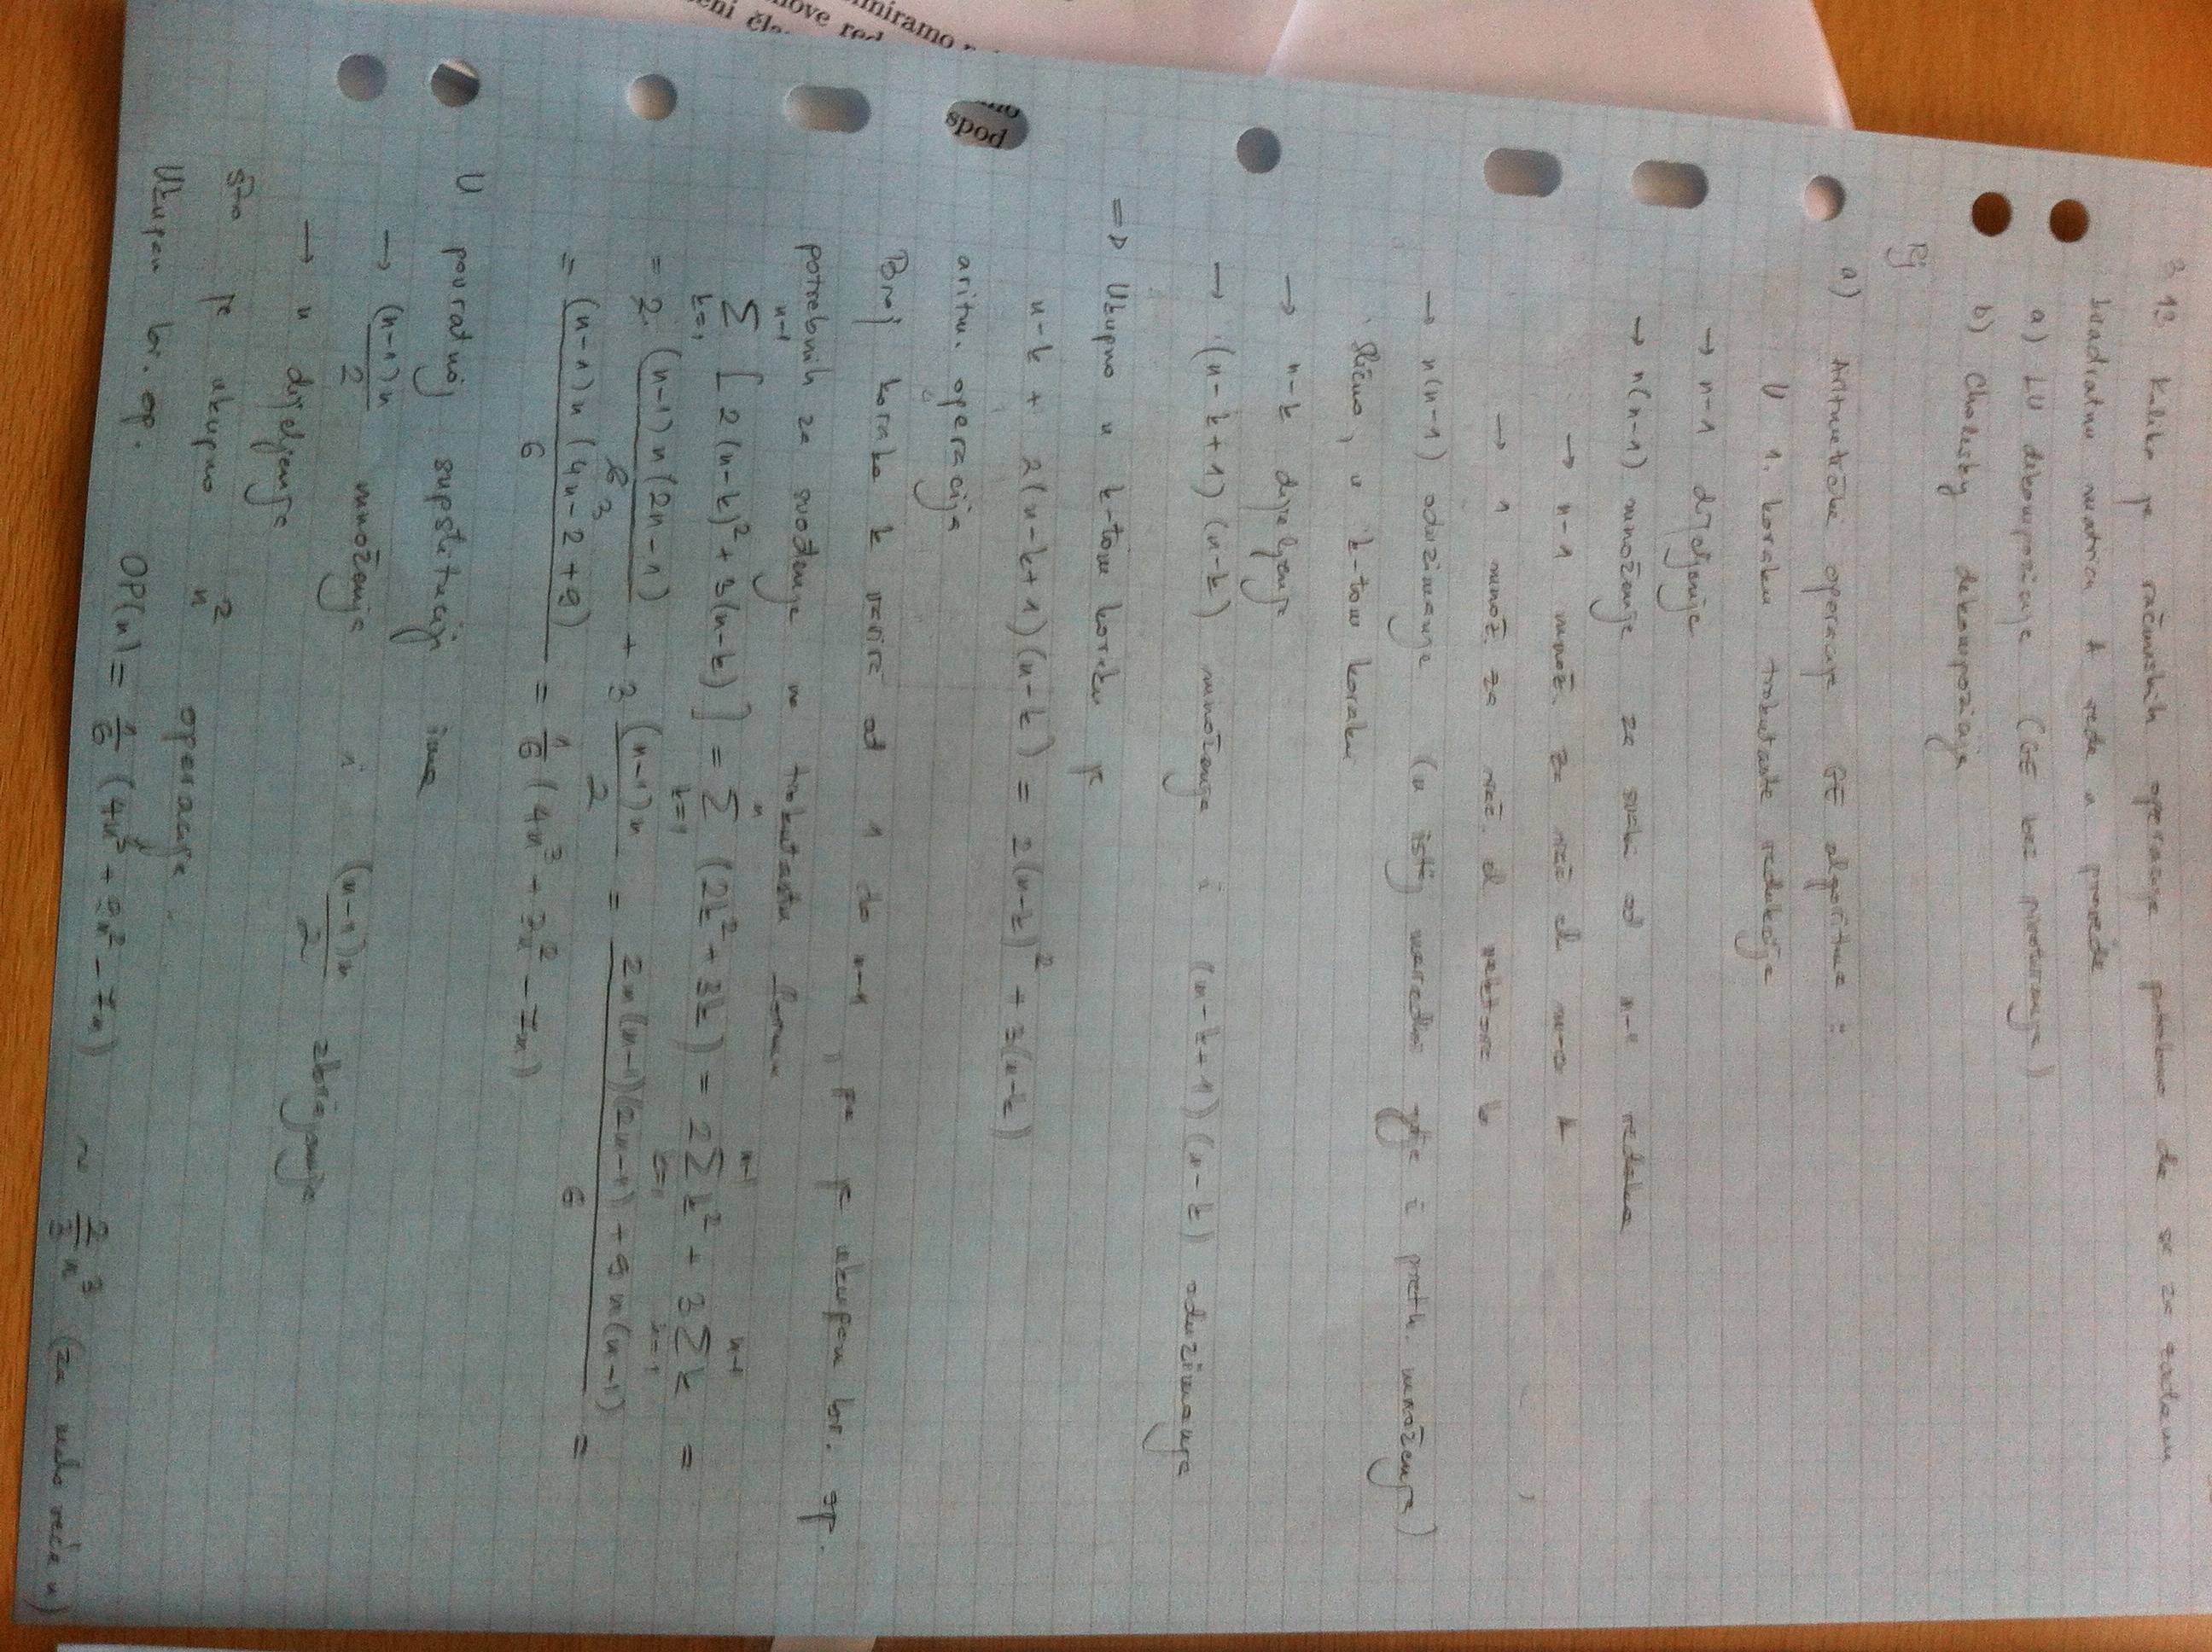 3.13 Koliko je računskih operacija potrebno da se za zadanu
kvadratnu matricu A reda n provede
a) LU dekompozicija (GE bez pivotiranja)
b) Cholesky dekompozicija
Rj
a) Aritmetičke operacije GE algoritma :
U 1. koraku trokutaste redukcije
→ n-1 dijeljenje
→ n(n-1) množenje za svaki od n-1 redaka
→ n-1 množ. za rač. el. m-a A
→ 1 množ. za rač. el. vektora b
→ n(n-1) oduzimanje (u istoj naredbi gdje i preth. množenja)
Slično, u k-tom koraku
→ n-k dijeljenje
→ (n-k+1)(n-k) množenje i (n-k+1)(n-k) oduzimanje
=> Ukupno u k-tom koraku je
n-k + 2(n-k+1)(n-k) = 2(n-k)² + 3(n-k)
aritm. operacija
Broj koraka k varira od 1 do n-1, pa je ukupan br. op.
potrebnih za svođenje na trokutastu formu
∑_{k=1}^{n-1} [2(n-k)² + 3(n-k)] = ∑_{k=1}^{n} (2k² + 3k) = 2∑_{k=1}^{n-1} k² + 3∑_{k=1}^{n-1} k =
= 2·(n-1)n(2n-1)/6 3 + 3 (n-1)n/2 = (2n(n-1)(2n-1) + 9n(n-1))/6 =
= (n-1)n(4n-2+9)/6 = 1/6 (4n³ + 3n² - 7n)
U povratnoj supstituciji ima
→ (n-1)n/2 množenja i (n-1)n/2 zbrajanja
→ n dijeljenja
što je ukupno n² operacija.
Ukupan br. op. OP(n) = 1/6 (4n³ + 9n² - 7n) ~ 2/3 n³ (za malo veće n)
spod